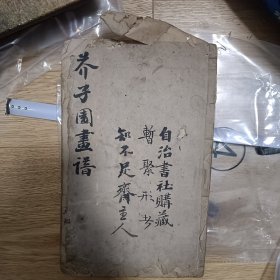 芥子園畫譜
自治書社購藏
暫聚形者
知不足齋主人